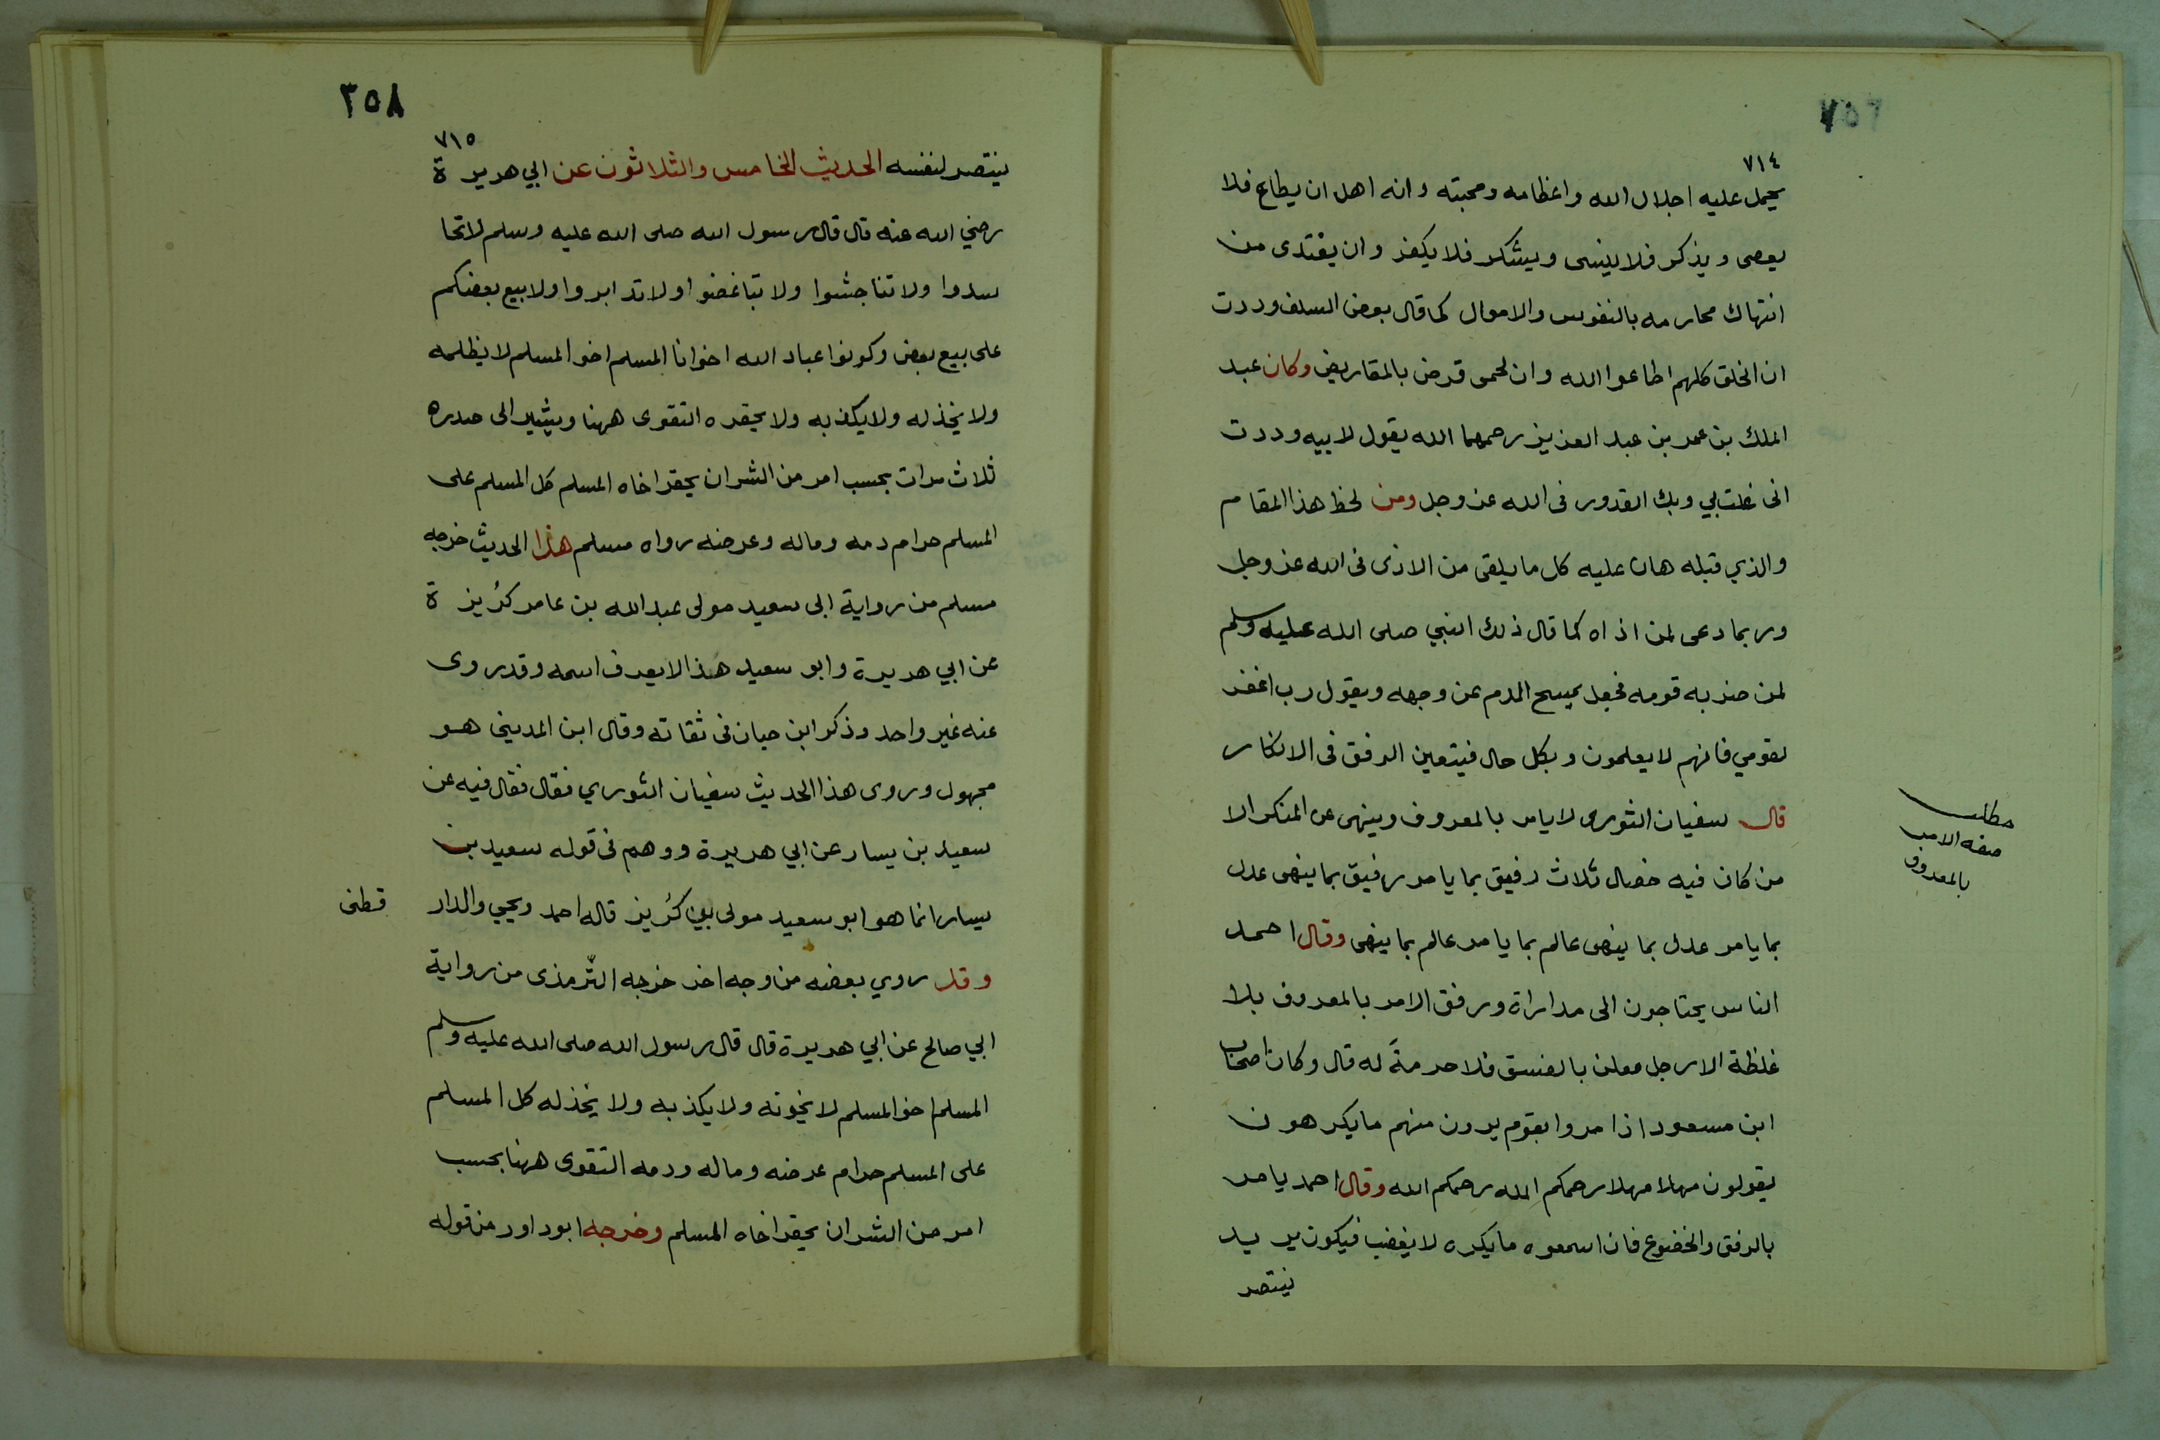 ٧١٤
يحمل عليه اجلال الله واعظامه ومحبته وانه اهل ان يطاع فلا
يعصى ويذكر فلا ينسى ويشكر فلا يكفر وان يفتدى من
انتهاك محارمه بالنفوس والاموال كما قال بعض السلف وددت
ان الخلق كلهم اطاعوا الله وان لحمى قرض بالمقاريض وكان عبد
الملك بن عمر بن عبد العزيز رحمهما الله يقول لابيه وددت
انى غلت بي وبك القدور فى الله عز وجل ومن لحظ هذا المقام
والذي قبله هان عليه كل ما يلقى من الاذى فى الله عز وجل
وربما دعى لمن اذاه كما قال ذلك النبي صلى الله عليه وسلم
لمن ضربه قومه فجعل يمسح الدم عن وجهه ويقول رب اغفر
لقومي فانهم لا يعلمون وبكل حال فيتعين الرفق فى الانكار
قال سفيان الثورى لا يامر بالمعروف وينهى عن المنكر الا
من كان فيه خصال ثلاث رفيق بما يامر رفيق بما ينهى عدل
بما يامر عدل بما ينهى عالم بما يامر عالم بما ينهى وقال احمد
الناس يحتاجون الى مداراة ورفق الامر بالمعروف بلا
غلظة الا رجل معلن بالفسق فلا حرمةَ له قال وكان اصحاب
ابن مسعود اذا مروا بقوم يرون منهم ما يكرهون
يقولون مهلا مهلا رحمكم الله رحمكم الله وقال احمد يامر
بالرفق والخضوع فان اسمعوه ما يكره لا يغضب فيكون يريد
ينتصر
مطلب
صفه الامر
بالمعروف
٣٥٨
٧١٥
ينتصر لنفسه الحديث الخامس والثلاثون عن ابي هريرة
رضي الله عنه قال قال رسول الله صلى الله عليه وسلم لا تحا
سدوا ولا تناجشوا ولا تباغضوا ولا تدابروا ولا يبيع بعضكم
على بيع بعض وكونوا عباد الله اخوانا المسلم اخو المسلم لا يظلمه
ولا يخذله ولا يكذبه ولا يحقره التقوى ههنا ويشير الى صدره
ثلاث مرات بحسب امر من الشر ان يحقر اخاه المسلم كل المسلم على
المسلم حرام دمه وماله وعرضه رواه مسلم هذا الحديث خرجه
مسلم من رواية ابى سعيد مولى عبد الله بن عامر كرُيزة
عن ابي هريرة وابو سعيد هذا لا يعرف اسمه وقد روى
عنه غير واحد وذكر ابن حبان فى ثقاته وقال ابن المدينى هو
مجهول وروى هذا الحديث سفيان الثوري فقال فقال فيه عن
سعيد بن يسار عن ابي هريرة ووهم فى قوله سعيد بن
يسار انما هو ابو سعيد مولى بني كرُيز قاله احمد ويحيي والدار
قطنى
وقد روي بعضه من وجه اخر خرجه التّرمذى من رواية
ابي صالح عن ابي هريرة قال قال رسول الله صلى الله عليه وسلم
المسلم اخو المسلم لا يخونه ولا يكذبه ولا يخذله كل المسلم
على المسلم حرام عرضه وماله ودمه التقوى ههنا بحسب
امر من الشر ان يحقر اخاه المسلم وخرجه ابو داود من قوله